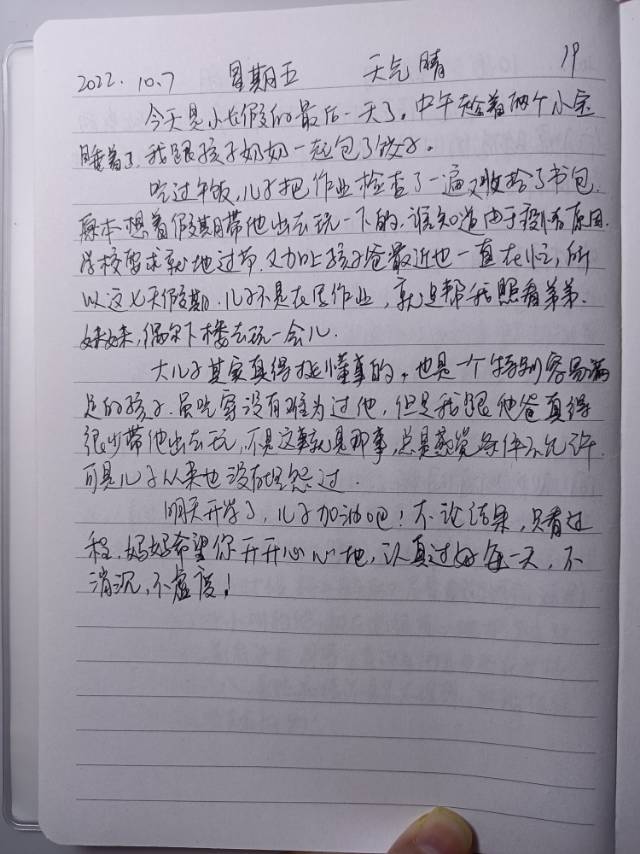 2022.10.7 星期五 天气晴 19
今天是小长假的最后一天了。中午趁着两个小宝
睡着了,我跟孩子奶奶一起包了饺子。
吃过午饭,儿子把作业检查了一遍又收拾了书包,
原本想着假期带他出去玩一下的,谁知道由于疫情原因,
学校要求就地过节,又加上孩子爸最近也一直在忙,所
以这七天假期,儿子不是在写作业,就是帮我照看弟弟、
妹妹,偶尔下楼去玩一会儿.
大儿子其实真得挺懂事的,也是一个特别容易满
足的孩子.虽吃穿没有难为过他,但是我跟他爸真得
很少带他出去玩,不是这事就是那事,总是感觉条件不允许.
可是儿子从来也没有埋怨过.
明天开学了,儿子加油吧!不论结果,只看过
程.妈妈希望你开开心心地,认真过好每一天,不
消沉,不虚度!